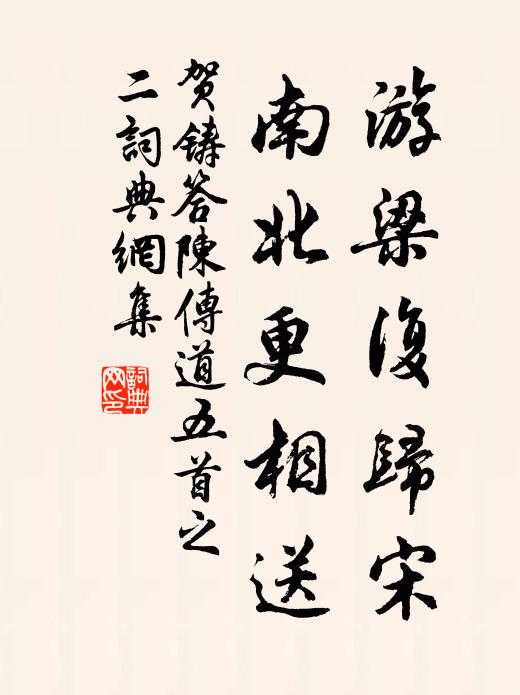 游梁復歸宋
南北更相送
贺鑄答陳傳道五首之
二詞典網集
詞典
网印